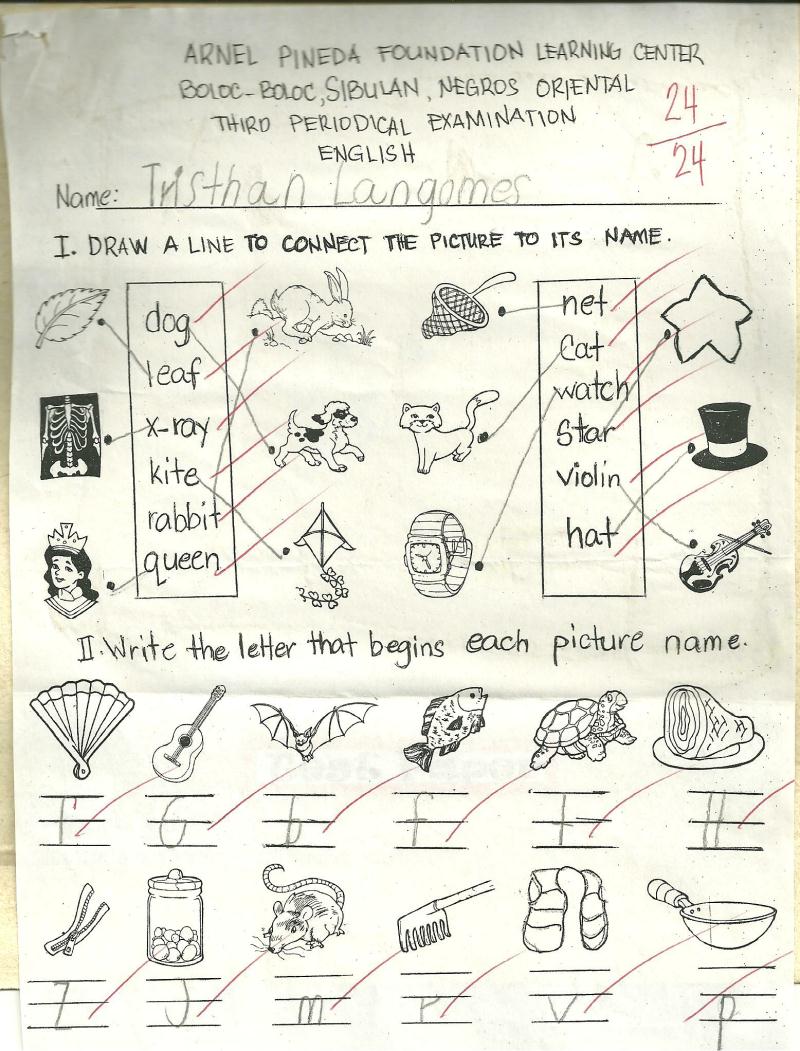 ARNEL PINEDA FOUNDATION LEARNING CENTER
BOLOC-BOLOC, SIBULAN, NEGROS ORIENTAL
THIRD PERIODICAL EXAMINATION
ENGLISH
24
24
Name: Tristhan Langomes
I. DRAW A LINE TO CONNECT THE PICTURE TO ITS NAME.
dog
leaf
x-ray
kite
rabbit
queen
net
cat
watch
star
violin
hat
II. Write the letter that begins each picture name.
F G b f t H
Z J m r v p